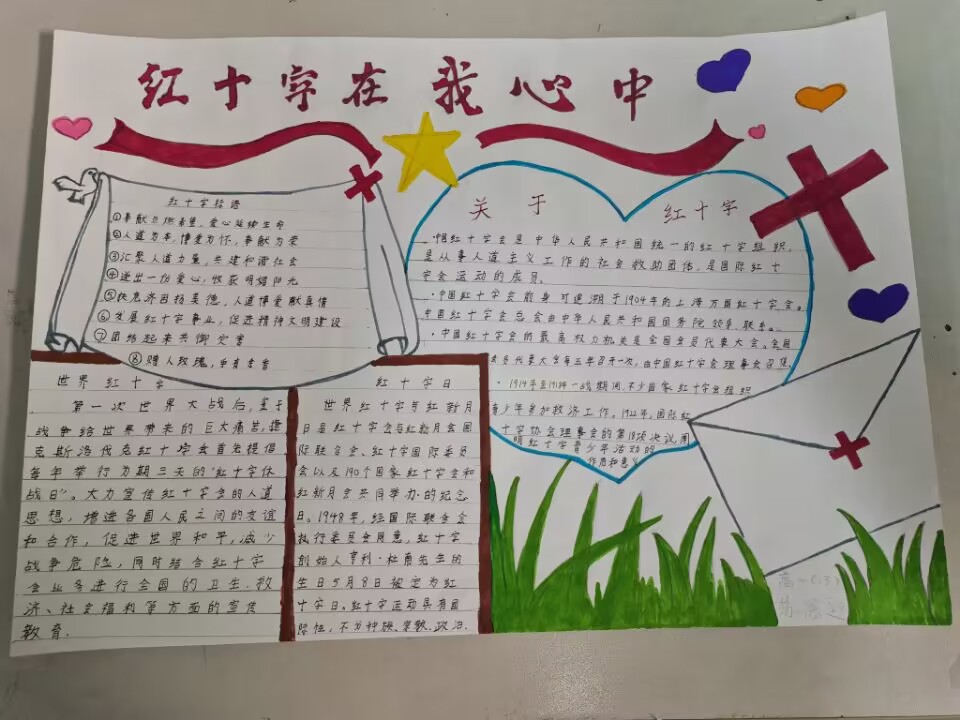 红十字在我心中
红十字标语
①奉献点燃希望,爱心延续生命
②人道为本,博爱为怀,奉献为荣
③汇聚人道力量,共建和谐社会
④送出一份爱心,收获明媚阳光
⑤扶危济困扬美德,人道博爱献真情
⑥发展红十字事业,促进精神文明建设
⑦团结起来共御灾害
⑧赠人玫瑰,手有余香
关于 红十字
·中国红十字会是中华人民共和国统一的红十字组织,
是从事人道主义工作的社会救助团体,是国际红十
字会运动的成员.
·中国红十字会前身可追溯于1904年的上海万国红十字会。
中国红十字会总会由中华人民共和国国务院领导、联系。
·中国红十字会的最高权力机关是全国会员代表大会。全国
会员代表大会每五年召开一次,由中国红十字会理事会召集.
·1914年至1918年一战期间,不少国家红十字会组织
青少年参加救济工作。1922年,国际红
十字协会理事会的第18项决议阐
明红十字青少年活动的
作用和意义
世界红十字
第一次世界大战后,鉴于
战争给世界带来的巨大痛苦,捷
克斯洛伐克红十字会首先提倡
每年举行为期三天的“红十字休
战日”。大力宣传红十字会的人道
思想,增进各国人民之间的友谊
和合作,促进世界和平,减少
战争危险,同时结合红十字
会业务进行全国的卫生、救
济、社会福利等方面的宣传
教育.
红十字日
世界红十字与红新月
日是红十字会与红新月会国
际联合会、红十字国际委员
会以及190个国家红十字会和
红新月会共同举办的纪念
日。1948年,经国际联合会
执行委员会同意,红十字
创始人亨利·杜南先生的
生日5月8日被定为红
十字日。红十字运动具有国
际性,不分种族、宗教、政治.
高一(13)